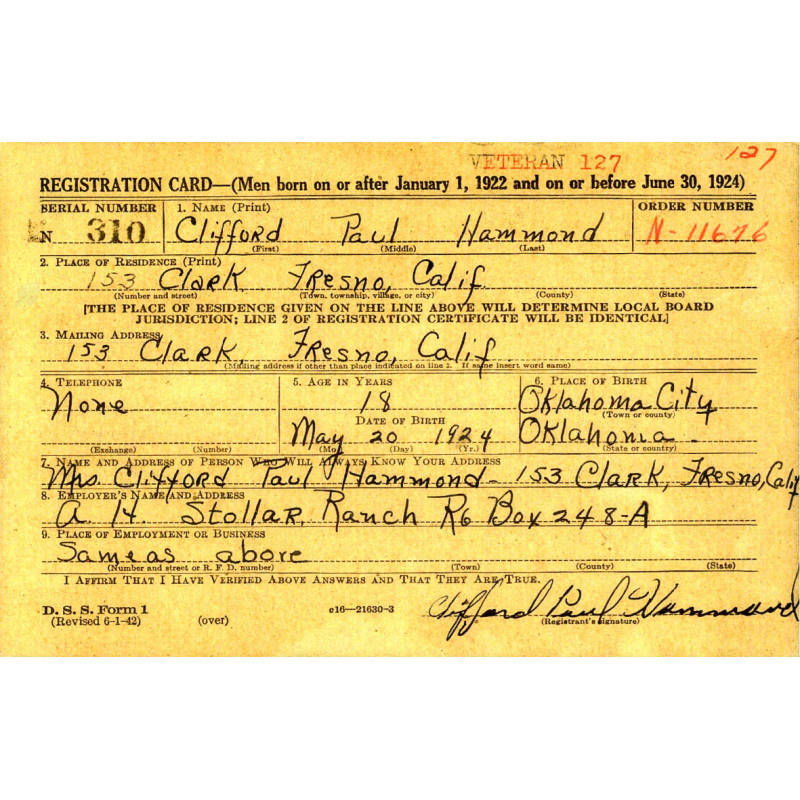 VETERAN 127 127
REGISTRATION CARD—(Men born on or after January 1, 1922 and on or before June 30, 1924)
SERIAL NUMBER 1. NAME (Print) ORDER NUMBER
N 310 Clifford Paul Hammond N-11676
(First) (Middle) (Last)
2. PLACE OF RESIDENCE (Print)
153 Clark Fresno, Calif.
(Number and street) (Town, township, village, or city) (County) (State)
[THE PLACE OF RESIDENCE GIVEN ON THE LINE ABOVE WILL DETERMINE LOCAL BOARD
JURISDICTION; LINE 2 OF REGISTRATION CERTIFICATE WILL BE IDENTICAL]
3. MAILING ADDRESS
153 Clark, Fresno, Calif.
(Mailing address if other than place indicated on line 2. If same insert word same)
4. TELEPHONE 5. AGE IN YEARS 6. PLACE OF BIRTH
None 18 Oklahoma City
(Town or county)
DATE OF BIRTH
May 20 1924 Oklahoma
(Exchange) (Number) (Mo.) (Day) (Yr.) (State or country)
7. NAME AND ADDRESS OF PERSON WHO WILL ALWAYS KNOW YOUR ADDRESS
Mrs. Clifford Paul Hammond - 153 Clark, Fresno, Calif
8. EMPLOYER'S NAME AND ADDRESS
A. H. Stollar Ranch R6 Box 248-A
9. PLACE OF EMPLOYMENT OR BUSINESS
Same as above
(Number and street or R. F. D. number) (Town) (County) (State)
I AFFIRM THAT I HAVE VERIFIED ABOVE ANSWERS AND THAT THEY ARE TRUE.
D. S. S. Form 1 c16—21630-3 Clifford Paul Hammond
(Revised 6-1-42) (over) (Registrant's signature)